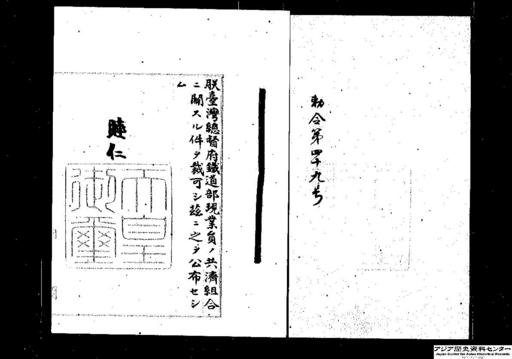 勅令第四十九号
朕臺灣總督府鐵道部現業員ノ共濟組合
ニ關スル件ヲ裁可シ茲ニ之ヲ公布セシ
ム
睦仁
天皇
御璽
アジア歴史資料センター
Japan Center for Asian Historical Records